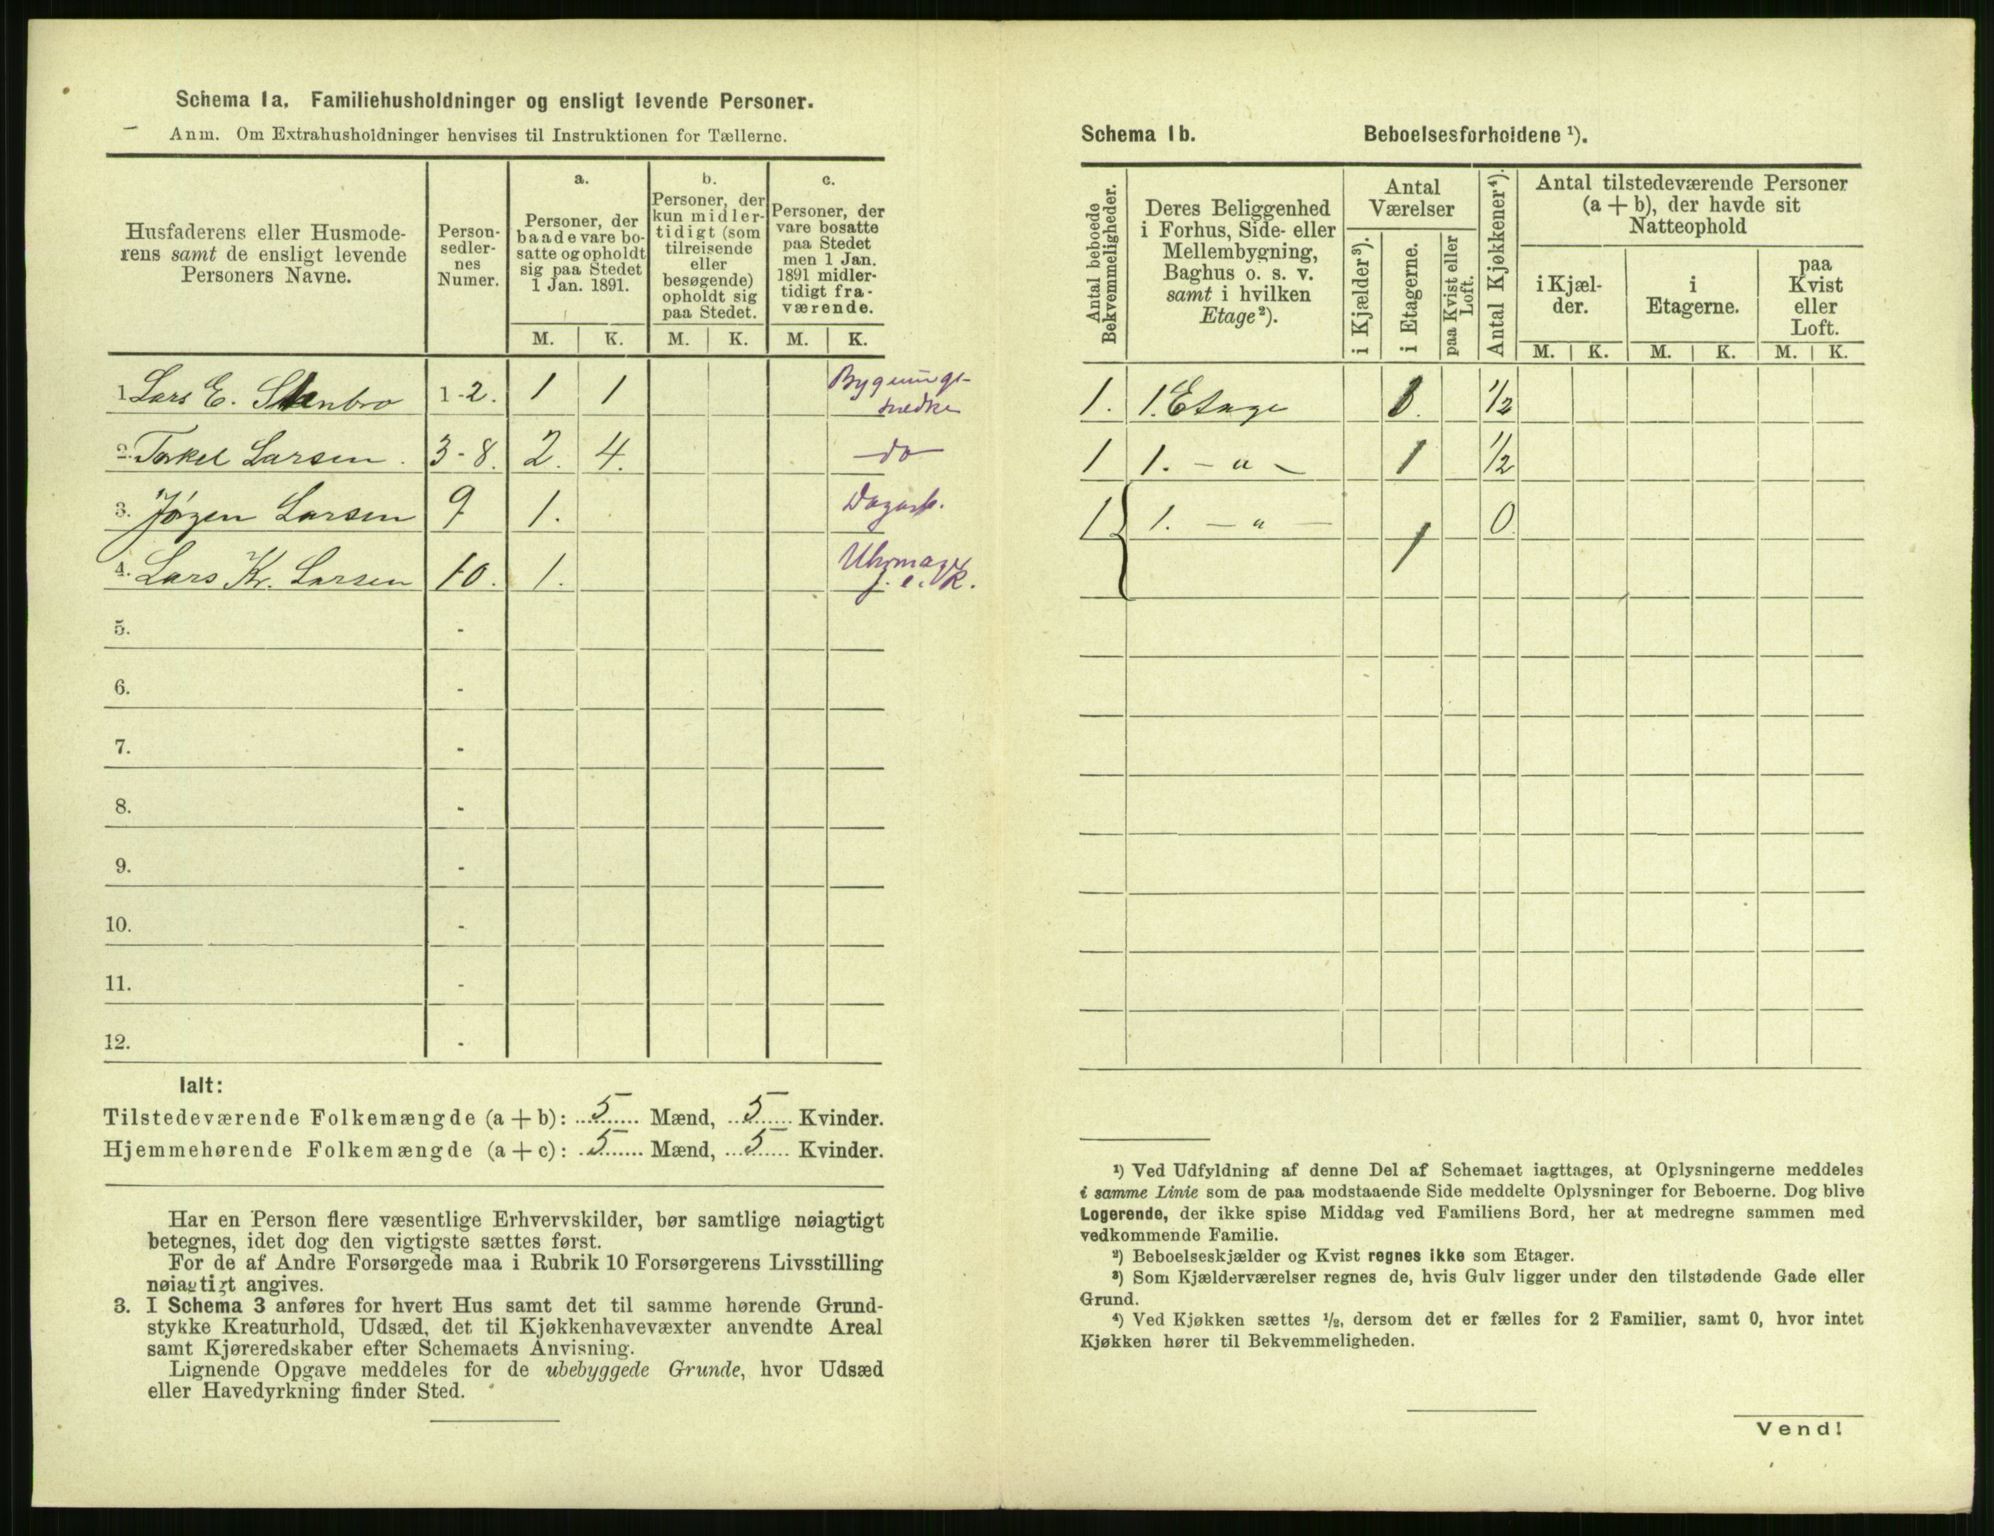 Schema 1a. Familiehusholdninger og ensligt levende Personer.
Anm. Om Extrahusholdninger henvises til Instruktionen for Tællerne.
Husfaderens eller Husmode-
rens samt de ensligt levende
Personers Navne.
Person-
sedler-
nes
Numer.
a.
Personer, der
baade vare bo-
satte og opholdt
sig paa Stedet
1 Jan. 1891.
b.
Personer, der
kun midler-
tidigt (som
tilreisende
eller
besøgende)
opholdt sig
paa Stedet.
c.
Personer, der
vare bosatte
paa Stedet
men 1 Jan.
1891 midler-
tidigt fra-
værende.
M. K. M. K. M. K.
1. Lars E. Stenbro 1-2. 1 1 Bygnings-
snedker
2. Torkel Larsen. 3-8. 2. 4. do
3. Jörgen Larsen 9 1. Dagarb.
4. Lars Kr. Larsen 10. 1. Uhrmager
f. e. R.
5. -
6. -
7. -
8. -
9. -
10. -
11. -
12. -
Ialt:
Tilstedeværende Folkemængde (a + b): 5 Mænd, 5 Kvinder.
Hjemmehørende Folkemængde (a + c): 5 Mænd, 5 Kvinder.
Har en Person flere væsentlige Erhvervskilder, bør samtlige nøiagtigt
betegnes, idet dog den vigtigste sættes først.
For de af Andre Forsørgede maa i Rubrik 10 Forsørgerens Livsstilling
nøiagtigt angives.
3. I Schema 3 anføres for hvert Hus samt det til samme hørende Grund-
stykke Kreaturhold, Udsæd, det til Kjøkkenhavevæxter anvendte Areal
samt Kjøreredskaber efter Schemaets Anvisning.
Lignende Opgave meddeles for de ubebyggede Grunde, hvor Udsæd
eller Havedyrkning finder Sted.
Schema 1b. Beboelsesforholdene ¹).
Antal beboede
Bekvemmeligheder.
Deres Beliggenhed
i Forhus, Side- eller
Mellembygning,
Baghus o. s. v.
samt i hvilken
Etage²).
Antal
Værelser
i Kjælder³).
i Etagerne.
paa Kvist eller
Loft.
Antal Kjøkkener⁴).
Antal tilstedeværende Personer
(a + b), der havde sit
Natteophold
i Kjæl-
der.
i
Etagerne.
paa
Kvist
eller
Loft.
M. K. M. K. M. K.
1. 1. Etage 1. 1/2
1 1. - " - 1 1/2
1 { 1. - " - 1 0
¹) Ved Udfyldning af denne Del af Schemaet iagttages, at Oplysningerne meddeles
i samme Linie som de paa modstaaende Side meddelte Oplysninger for Beboerne. Dog blive
Logerende, der ikke spise Middag ved Familiens Bord, her at medregne sammen med
vedkommende Familie.
²) Beboelseskjælder og Kvist regnes ikke som Etager.
³) Som Kjælderværelser regnes de, hvis Gulv ligger under den tilstødende Gade eller
Grund.
⁴) Ved Kjøkken sættes 1/2, dersom det er fælles for 2 Familier, samt 0, hvor intet
Kjøkken hører til Bekvemmeligheden.
Vend!